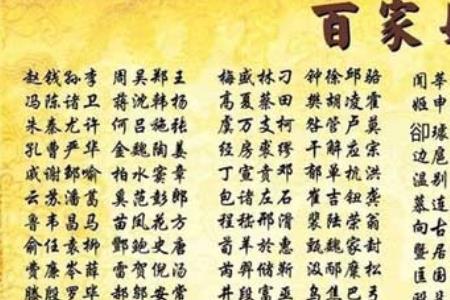 百家
赵钱孙李 周吴郑王 梅盛林刁 钟徐邱骆 闻莘
冯陈诸卫 蒋沈韩杨 高夏蔡田 樊胡凌霍 姬申
朱秦尤许 何吕施张 虞万支柯 昝管卢莫 卻璩
孔曹严华 金魏陶姜 经房裘缪 干解应宗 边扈
戚谢邹喻 柏水窦章 丁宣贲邓 郁单杭洪 温别
云苏潘葛 奚范彭郎 包诸左石 崔吉钮龚 慕连
鲁韦昌马 苗凤花方 程嵇邢滑 裴陆荣翁 向古
俞任袁柳 酆鲍史唐 荀羊於惠 甄魏家封 暨居
费廉岑薛 雷贺倪汤 芮羿储靳 汲邴糜松 匡国
滕殷罗毕 安常 井段富巫 焦巴